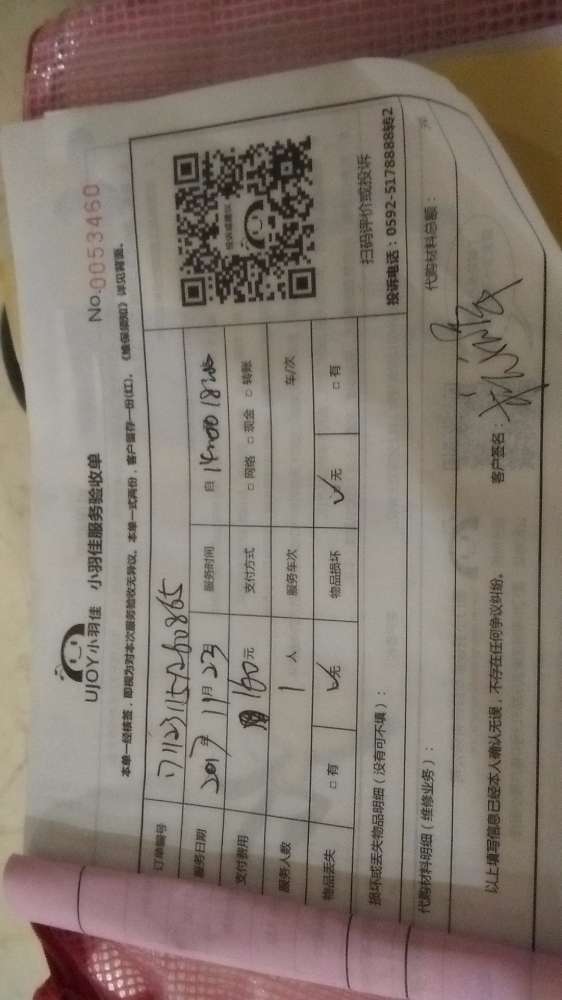 UJOY小羽佳 小羽佳服务验收单
No.0053460
本单一经核签，即视为对本次服务验收无异议。本单一式两份，客户留存一份(红)，《维保须知》详见背面。
订单编号 1711231157260865
服务日期 2017年11月23日 服务时间 自 14:00 18:00
支付费用 160元 支付方式 □网络 □现金 □转账
服务人数 1人 服务车次 车/次
物品丢失 □有 ✓无 物品损坏 ✓无 □有
投诉或建议
扫码评价或投诉
投诉电话：0592-5178888转2
损坏或丢失物品明细（没有可不填）：
代购材料明细（维修业务）： 代购材料总额： 元
以上填写信息已经本人确认无误，不存在任何争议纠纷。 客户签名：